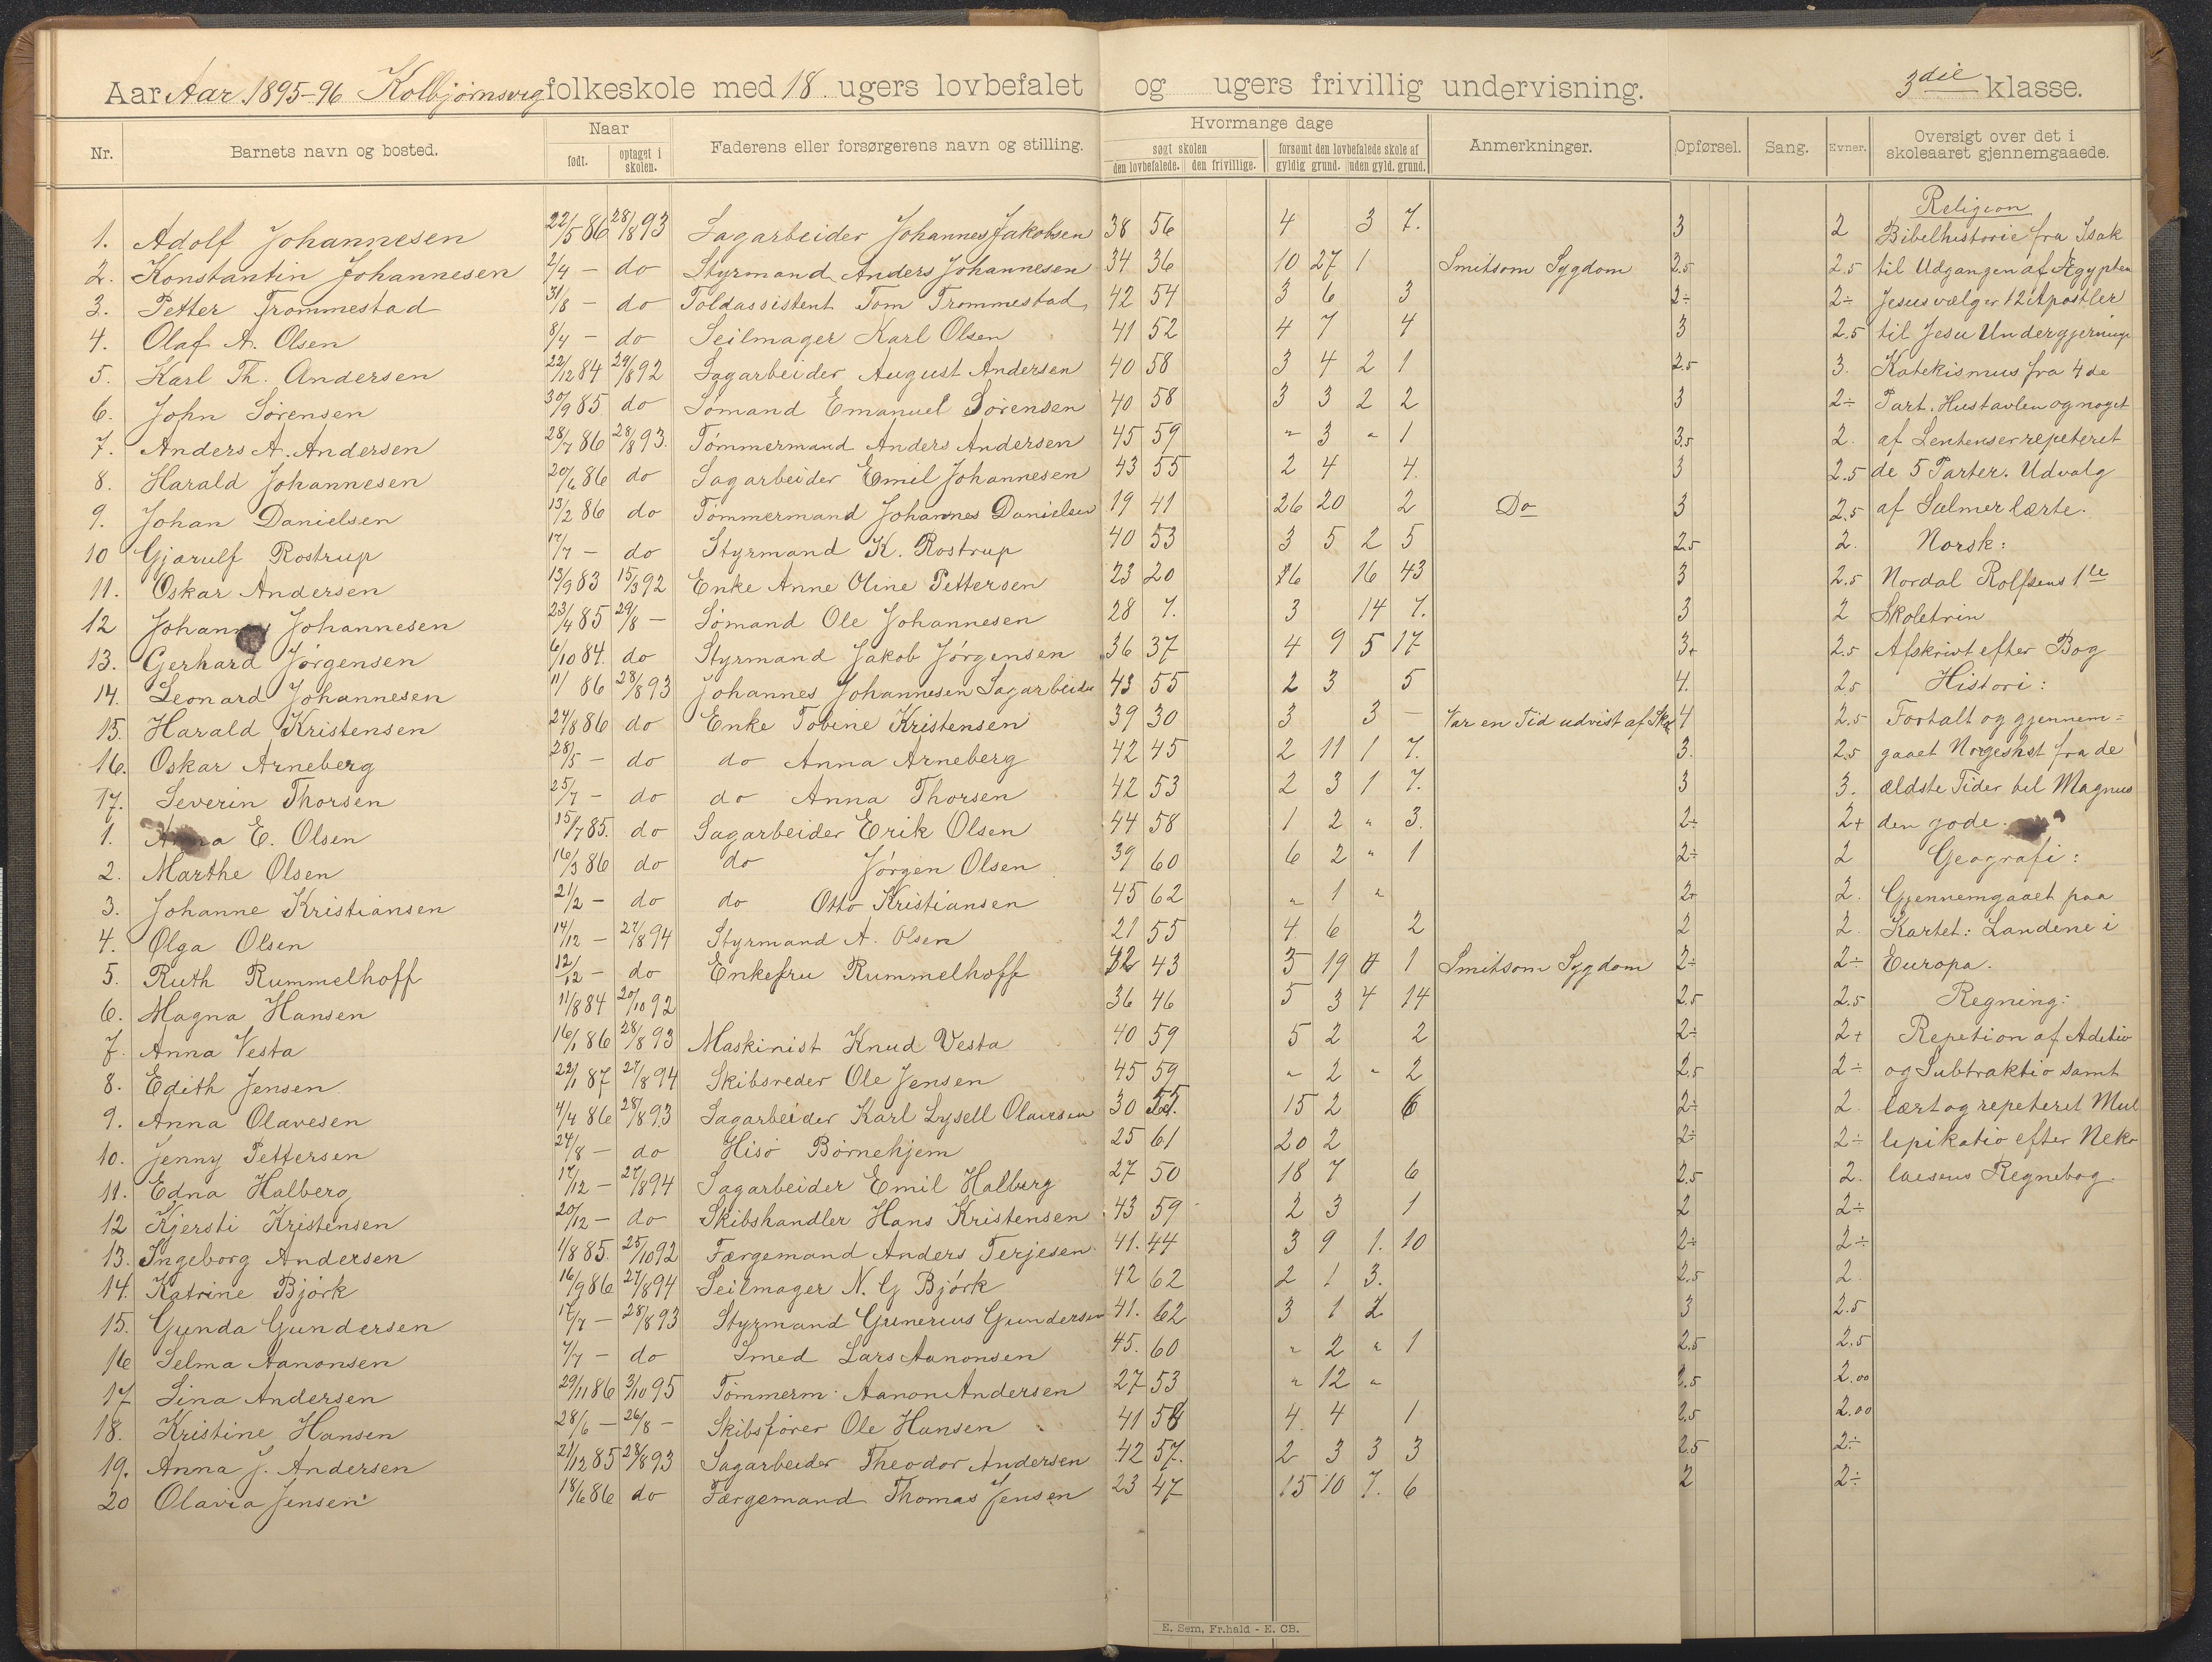 Aar Aar 1895-96 Kolbjørnsvig folkeskole med 18 ugers lovbefalet og ugers frivillig undervisning. 3die klasse.
Nr. Barnets navn og bosted. Naar født. optaget i skolen. Faderens eller forsørgerens navn og stilling. Hvormange dage søgt skolen den lovbefalede. den frivillige. forsømt den lovbefalede skole af gyldig grund. uden gyld. grund. Anmerkninger. Opførsel. Sang. Evner. Oversigt over det i skoleaaret gjennemgaaede.
Religion
1. Adolf Johannesen 22/5 86 28/8 93 Sagarbeider Johannes Jakobsen 38 56 4 3 7. 3 2 Bibelhistorie fra Isak
2. Konstantin Johannesen 2/4 – do Styrmand Anders Johannesen 34 36 10 27 1 Smitsom Sygdom 2.5 2.5 til Udgangen af Ægypten
3. Petter Trommestad 31/8 – do Toldassistent Tom Trommestad 42 54 3 6 3 2÷ 2÷ Jesus vælger 12 Apostler
4. Olaf A. Olsen 8/4 – do Seilmager Karl Olsen 41 52 4 7 4 3 2.5 til Jesu Undergjerninge
5. Karl Th. Andersen 22/12 84 29/8 92 Sagarbeider August Andersen 40 58 3 4 2 1 2.5 3. Katekismus fra 4de
6. John Sørensen 30/9 85 do Sømand Emanuel Sørensen 40 58 3 3 2 2 3 2÷ Part. Hustavlen og noget
7. Anders A. Andersen 28/7 86 28/8 93. Tømmermand Anders Andersen 45 59 " 3 " 1 3.5 2. af Sentenser repeteret
8. Harald Johannesen 20/6 86 do Sagarbeider Emil Johannesen 43 55 2 4 4. 3 2.5 de 5 Parter. Udvalg
9. Johan Danielsen 13/2 86 do Tømmermand Johannes Danielsen 19 41 26 20 2 Do 3 2.5 af Salmer lærte.
10 Gjarulf Rostrup 17/7 – do Styrmand K. Rostrup 40 53 3 5 2 5 2.5 2. Norsk:
11. Oskar Andersen 13/9 83 15/3 92 Enke Anne Oline Pettersen 23 20 16 16 43 3 2.5 Nordal Rolfsens 1te
12 Johannes Johannesen 23/4 85 29/8 – Sømand Ole Johannesen 28 7. 3 14 7. 3 2 Skoletrin
13. Gerhard Jørgensen 6/10 84. do Styrmand Jakob Jørgensen 36 37 4 9 5 17 3+ 2.5 Afskrivt efter Bog
14. Leonard Johannesen 11/ 86 28/8 93 Johannes Johannesen Sagarbeider 43 55 2 3 5 4. 2.5 Histori:
15. Harald Kristensen 24/8 86 do Enke Tobine Kristensen 39 30 3 3 – Var en Tid udvist af Skol 4 2.5 Fortalt og gjennem=
16. Oskar Arneberg 28/5 – do do Anna Arneberg 42 45 2 11 1 7. 3. 2.5 gaaet Norgeshst fra de
17. Severin Thorsen 25/7 – do do Anna Thorsen 42 53 2 3 1 7. 3 3. ældste Tider til Magnus
1. Anna E. Olsen 15/7 85. do Sagarbeider Erik Olsen 44 58 1 2 " 3. 2÷ 2+ den gode.
2. Marthe Olsen 16/3 86 do do Jørgen Olsen 39 60 6 2 " 1 2÷ 2 Geografi:
3. Johanne Kristiansen 21/2 – do do Otto Kristiansen 45 62 " 1 " 2+ 2. Gjennemgaaet paa
4. Olga Olsen 14/12 – 27/8 94 Styrmand A. Olsen 21 55 4 6 2 2 2. Kartet: Landene i
5. Ruth Rummelhoff 12/12 – do Enkefru Rummelhoff 32 43 5 19 1 Smitsom Sygdom 2÷ 2÷ Europa.
6. Magna Hansen 11/8 84 20/10 92 36 46 5 3 4 14 2.5 2.5 Regning:
7. Anna Vesta 16/1 86 28/8 93 Maskinist Knud Vesta 40 59 5 2 2 2÷ 2+ Repetion af Aditio
8. Edith Jensen 22/1 87 27/8 94 Skibsreder Ole Jensen 45 59 " 2 " 2 2.5 2÷ og Subtraktio samt
9. Anna Olavesen 4/4 86 28/8 93 Sagarbeider Karl Lysell Olavesen 30 55. 15 2 6 2÷ 2. lært og repeteret Mul
10. Jenny Pettersen 24/8 – do Hisø Børnehjem 25 61 20 2 2÷ 2÷ lipikatio efter Neko
11. Edna Halberg 17/12 – 27/8 94 Sagarbeider Emil Halberg 27 50 18 7 6 2.5 2. laesens Regnebog.
12 Kjersti Kristensen 20/12 – do Skibshandler Hans Kristensen 43 59 2 3 1 2 2÷
13. Ingeborg Andersen 1/8 85. 25/10 92 Færgemand Anders Terjesen 41. 44 3 9 1. 10 2÷ 2÷
14. Katrine Bjørk 16/9 86 27/8 94 Seilmager N. G Bjørk 42 62 2 1 3. 2.5 2.
15. Gunda Gundersen 17/7 – 28/8 93 Styrmand Gunerius Gundersen 41. 62 3 1 2 3 2.5
16 Selma Aanonsen 7/7 – do Smed Lars Aanonsen 45. 60 " 2 " 1 2.5 2.5
17 Lina Andersen 29/11 86 3/10 95 Tømmerm. Aanon Andersen 27 53 " 12 " 2.5 2.00
18. Kristine Hansen 28/6 – 26/8 – Skibsfører Ole Hansen 41 58 4. 4 1 2.5 2.00
19. Anna J. Andersen 21/12 85 28/8 93 Sagarbeider Theodor Andersen 42 57. 2 3 3 3 2.5 2÷
20 Olavia Jensen 18/6 86 do Færgemand Thomas Jensen 23 47 15 10 7. 6 2 2÷
E. Sem, Fr.hald - E. CB.